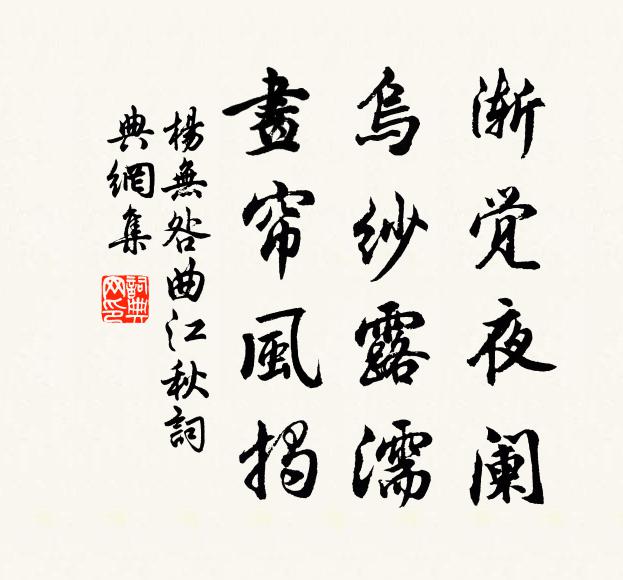 渐觉夜阑
烏紗露濡
畫帘風揭
楊無咎曲江秋詞
典網集
詞典网印